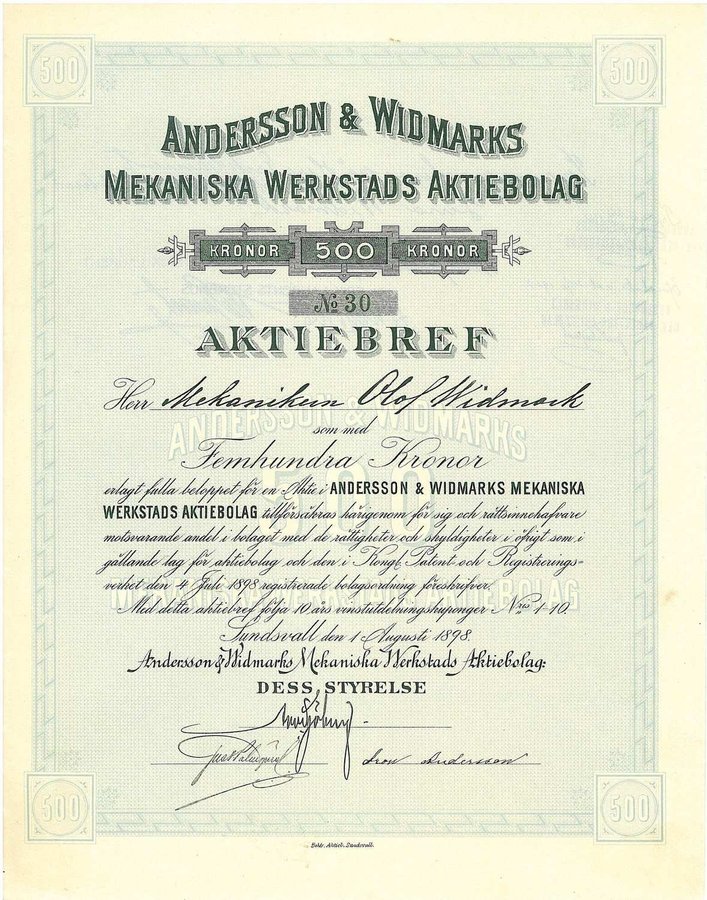 500 500
ANDERSSON & WIDMARKS
MEKANISKA WERKSTADS AKTIEBOLAG
KRONOR 500 KRONOR
No 30
AKTIEBREF
Herr Mekanikern Olof Widmark
som med
ANDERSSON & WIDMARKS
Femhundra Kronor
erlagt fulla beloppet för en Aktie i ANDERSSON & WIDMARKS MEKANISKA
WERKSTADS AKTIEBOLAG tillförsäkras härigenom för sig och rättsinnehafvare
500
motsvarande andel i bolaget med de rättigheter och skyldigheter i öfrigt som i
gällande lag för aktiebolag och den i Kongl. Patent och Registrerings-
verket den 4 Juli 1898 registrerade bolagsordning föreskrifver.
MEKANISKA WERKSTADS AKTIEBOLAG
Med detta aktiebref följa 10 års vinstutdelningskuponger Nris 1-10.
Sundsvall den 1 Augusti 1898.
Andersson & Widmarks Mekaniska Werkstads Aktiebolag:
DESS STYRELSE
Andersson
500 500
Boktr. Aktieb. Sundsvall.